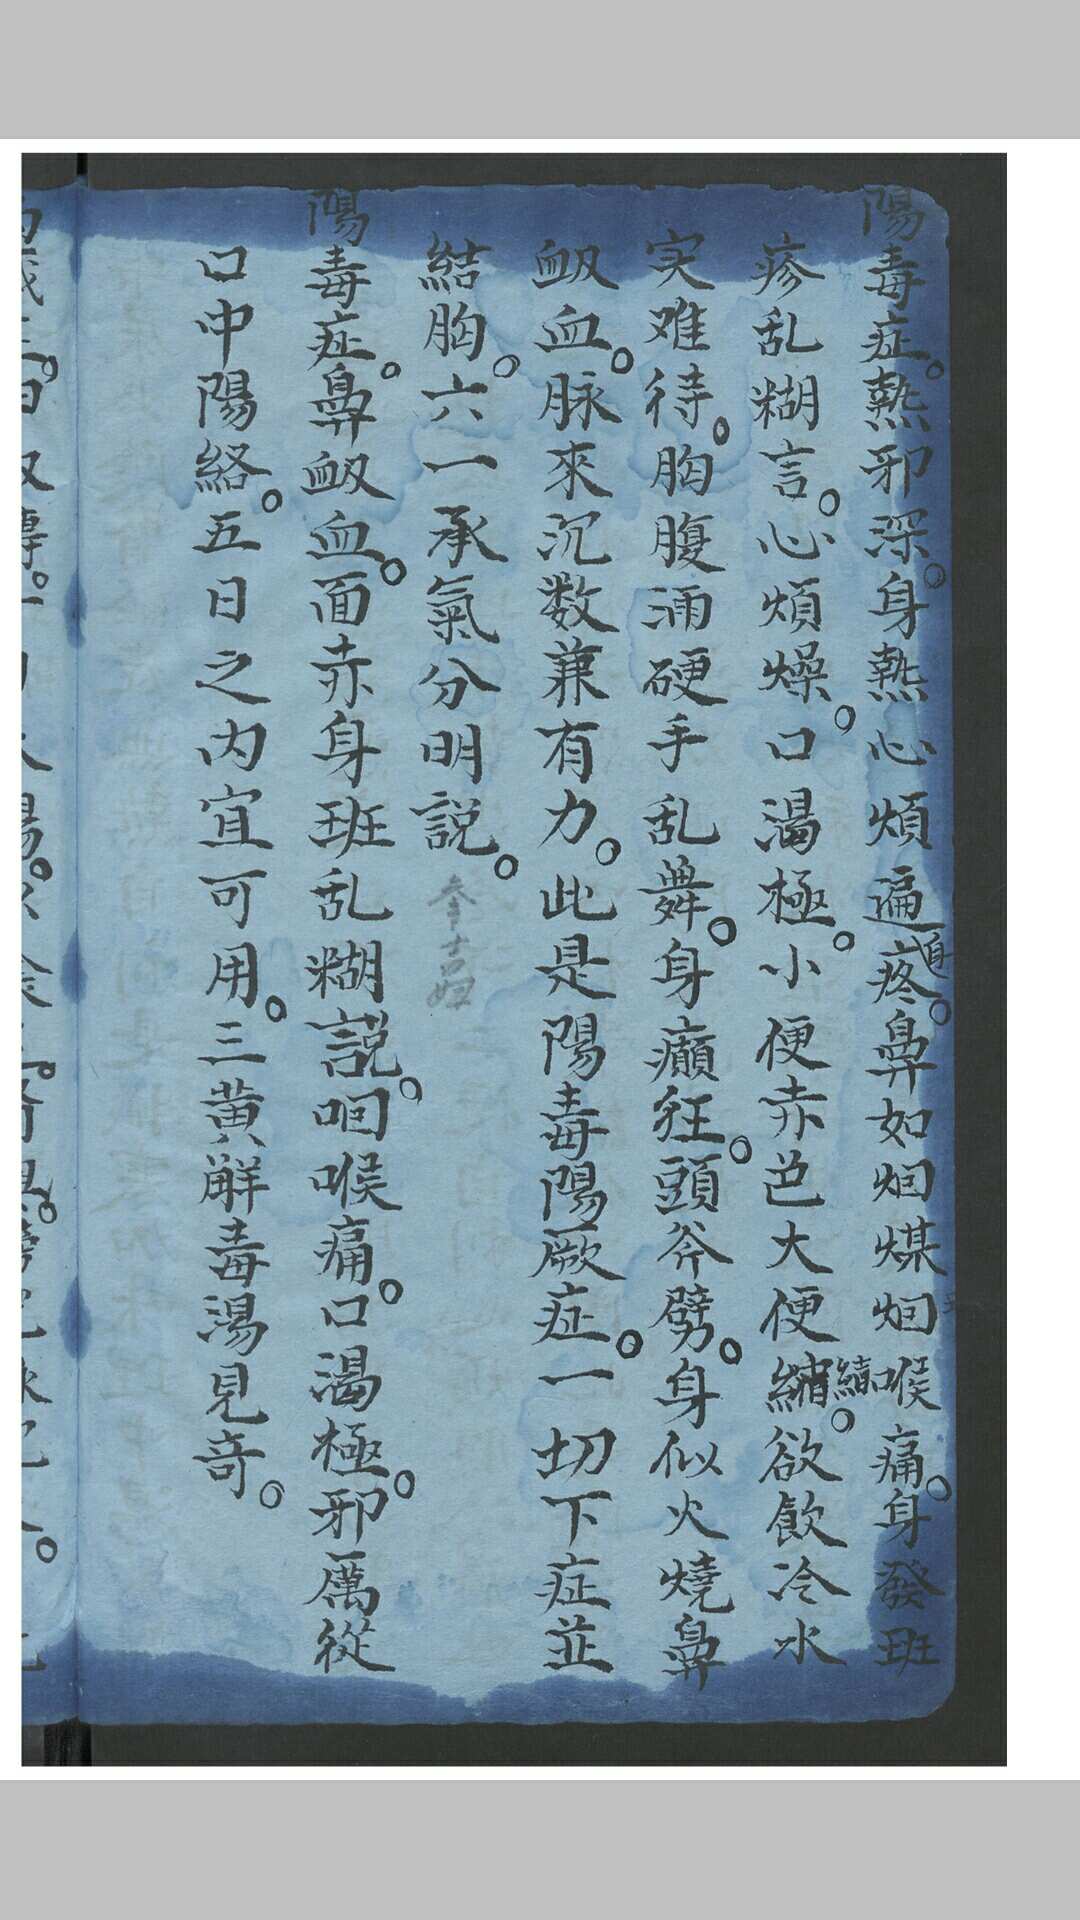 陽毒症。熱邪深。身熱心煩遍身疼。鼻如烟煤烟喉痛。身發班
疹乱糊言。心煩燥。口渴極。小便赤色大便縮結。欲飲冷水
実难待。胸腹滿硬手乱舞。身癲狂。頭斧劈。身似火燒鼻
衂血。脉來沉数兼有力。此是陽毒陽厥症。一切下症並
結胸。六一承氣分明說。
陽毒症。鼻衂血。面赤身班乱糊說。咽喉痛。口渴極。邪厲從
口中陽絡。五日之内宜可用。三黄解毒湯見奇。